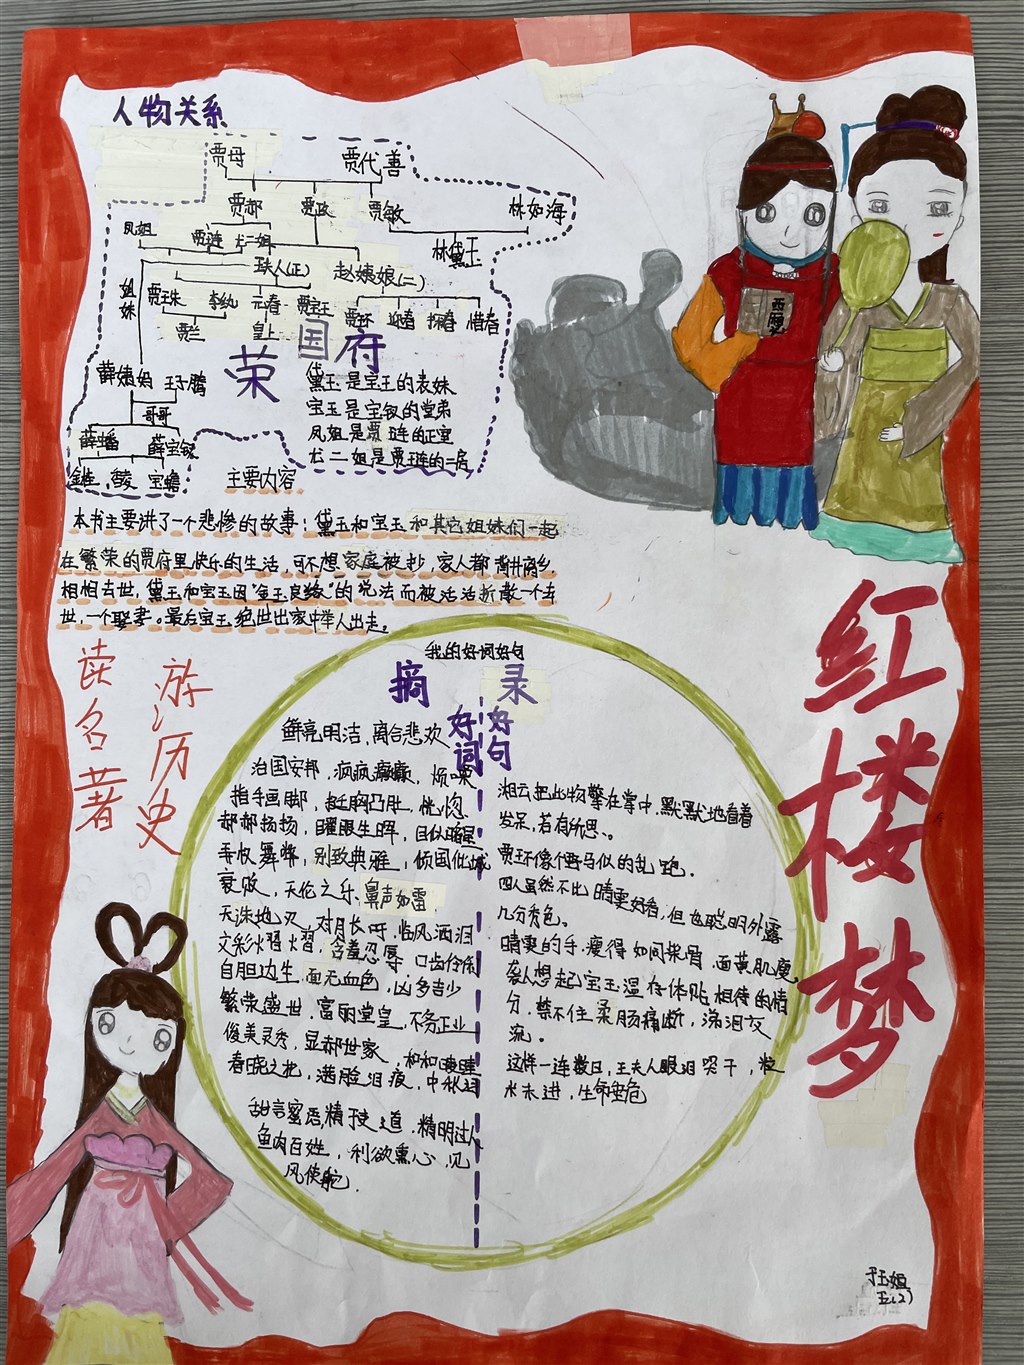 人物关系
贾母 贾代善
贾郝 贾政 贾敏 林如海
凤姐 贾琏 尤二姐 林黛玉
王夫人(正) 赵姨娘(二)
姐妹
贾珠 李纨 元春 贾宝玉 贾环 迎春 探春 惜春
贾兰 皇上
荣国府
薛姨妈 王子腾
哥哥
薛蟠 薛宝钗
宝蟾
黛玉是宝玉的表妹
宝玉是宝钗的堂弟
凤姐是贾琏的正室
尤二姐是贾琏的二房
主要内容
本书主要讲了一个悲惨的故事:黛玉和宝玉和其它姐妹们一起
在繁荣的贾府里快乐的生活,可不想家庭被抄,家人都背井离乡,
相相去世,黛玉和宝玉因“金玉良缘”的说法而被活活折散一个去
世,一个娶妻。最后宝玉绝世出家中举人出走。
读名著
游历史
红楼梦
西厢
我的好词好句
摘录
好词
好句
鲜亮明洁,离合悲欢
治国安邦,疯疯癫癫,烦
指手画脚,挺胸凸肚,恍惚
郝郝扬扬,耀眼生晖,目似
弄权舞弊,别致典雅,倾国倾城
衰败,天伦之乐、鼻声如雷
天诛地灭,对月长吁,临风洒泪
文彩熠熠,含羞忍辱,口齿伶俐
自胆边生,面无血色,凶多吉少
繁荣盛世,富丽堂皇,不务正业
俊美灵秀,显郝世家,和和睦睦
春晓之花,满脸泪痕,中秋
甜言蜜语,精于世道,精明过人
鱼肉百姓,利欲熏心,见
风使舵.
湘云把此物擎在掌中,默默地看着
发呆,若有所思、。
贾环像个野马似的乱跑.
四人虽然不比晴雯好看,但也聪明外露
几分秀色。
晴雯的手,瘦得如同柴骨,面黄肌瘦
袭人想起宝玉温存体贴相待的情
分,禁不住柔肠痛断,涕泪交
流。
这样一连数日,王夫人眼泪哭干,粒
水未进,生命垂危
五(2)